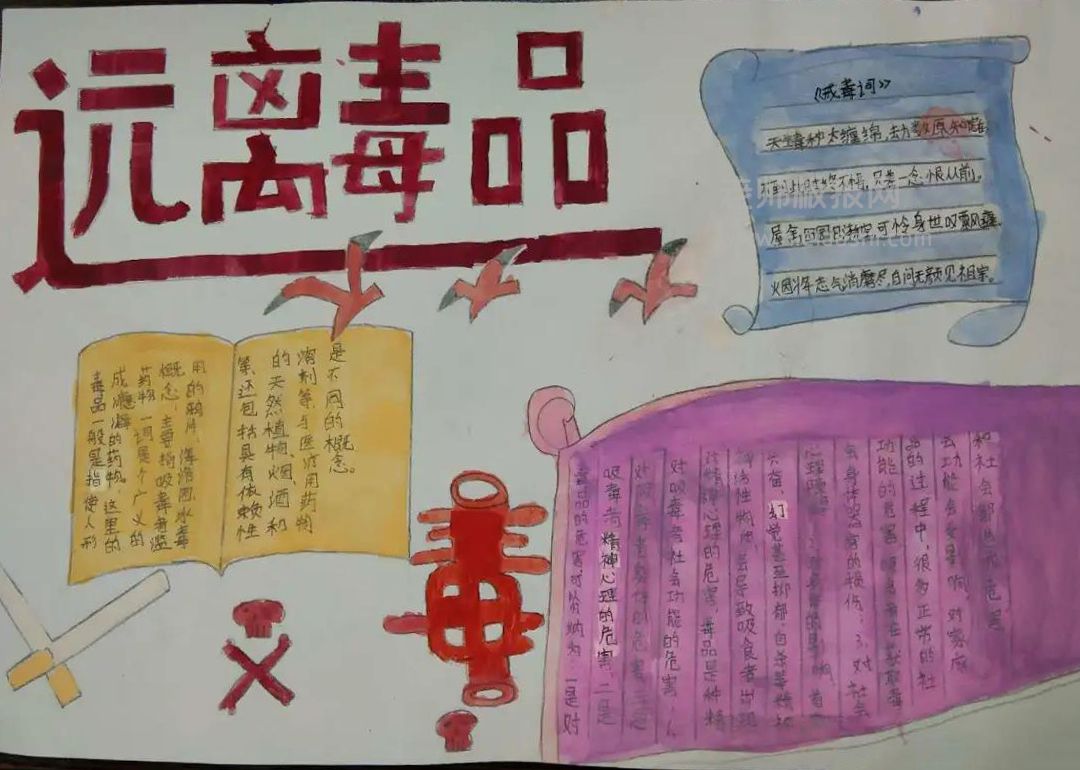 远离毒品
《戒毒词》
天生毒种太缠绵,去
时终不悟,只差一念恨从前。
可怜身世叹
年志气消磨尽,自问无颜见祖宗。
毒品一般是指使人形
成瘾癖的药物,这里的
药物一词是个广义的
概念,主要指吸毒者滥
用的鸦片、海洛因、冰毒
等,还包括具有依赖性
的天然植物、烟、酒和
溶剂等,与医疗用药物
是不同的概念。
毒品的危害可归纳为:一是对
吸毒者精神心理的危害,二是
对吸毒者身体的危害,三是
对吸毒者社会功能的危害,1、
对精神心理的危害,毒品是种精
神活性物质,会导致吸食者出现
幻觉甚至抑郁自杀等精神
心理障碍 对身体的影响,首先
会身体器官的损伤;3、对社会
功能的危害,吸毒者在获取毒
品的过程中,很多正常的社
会功能会受影响,对家庭
和社会都造成危害